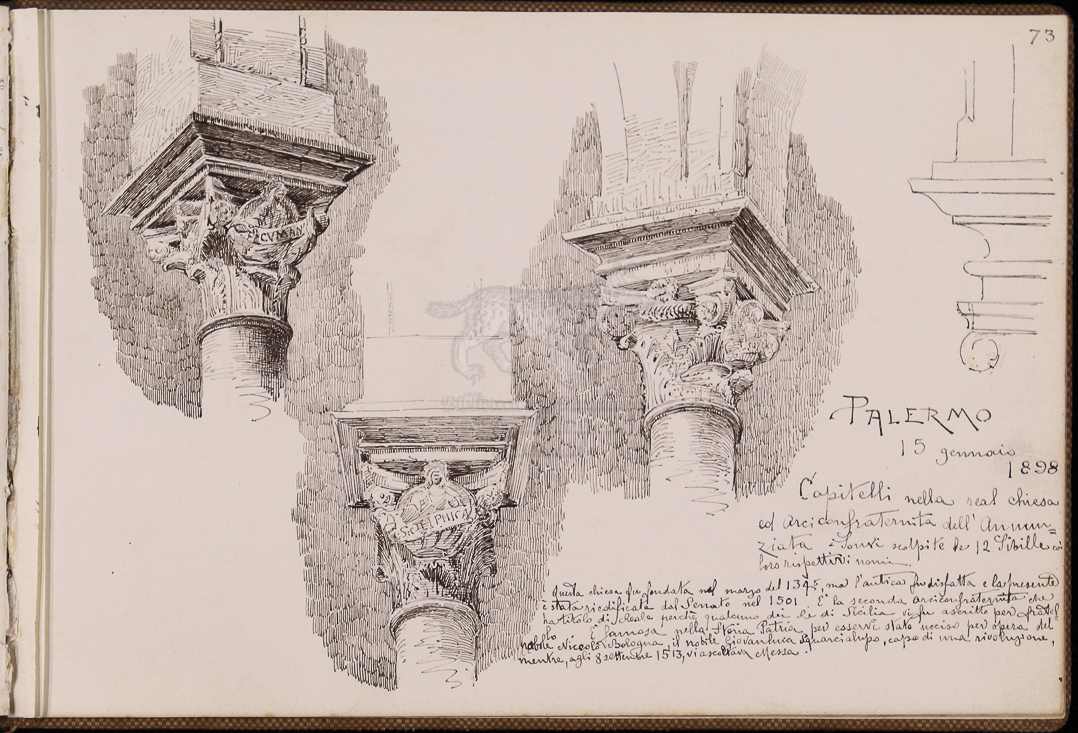 73
CVMAN
DELPHICA
PALERMO
15 gennaio
1898
Capitelli nella real chiesa
ed Arciconfraternita dell'Annun=
ziata. Sonvi scolpite le 12 Sibille coi
loro rispettivi nomi.
Questa chiesa fu fondata nel marzo del 1345, ma l'antica fu disfatta e la presente
è stata riedificata dal Senato nel 1501. E' la seconda arciconfraternita che
ha titolo di Reale perchè qualcuno dei Re di Sicilia vi fu ascritto per fratel
lo. È famosa nella Storia Patria per esservi stato ucciso per opera del
nobile Niccolò Bologna, il nobile Giovanluca Squarcialupo, capo di una rivoluzione,
mentre, agli 8 settembre 1513, vi ascoltava Messa.